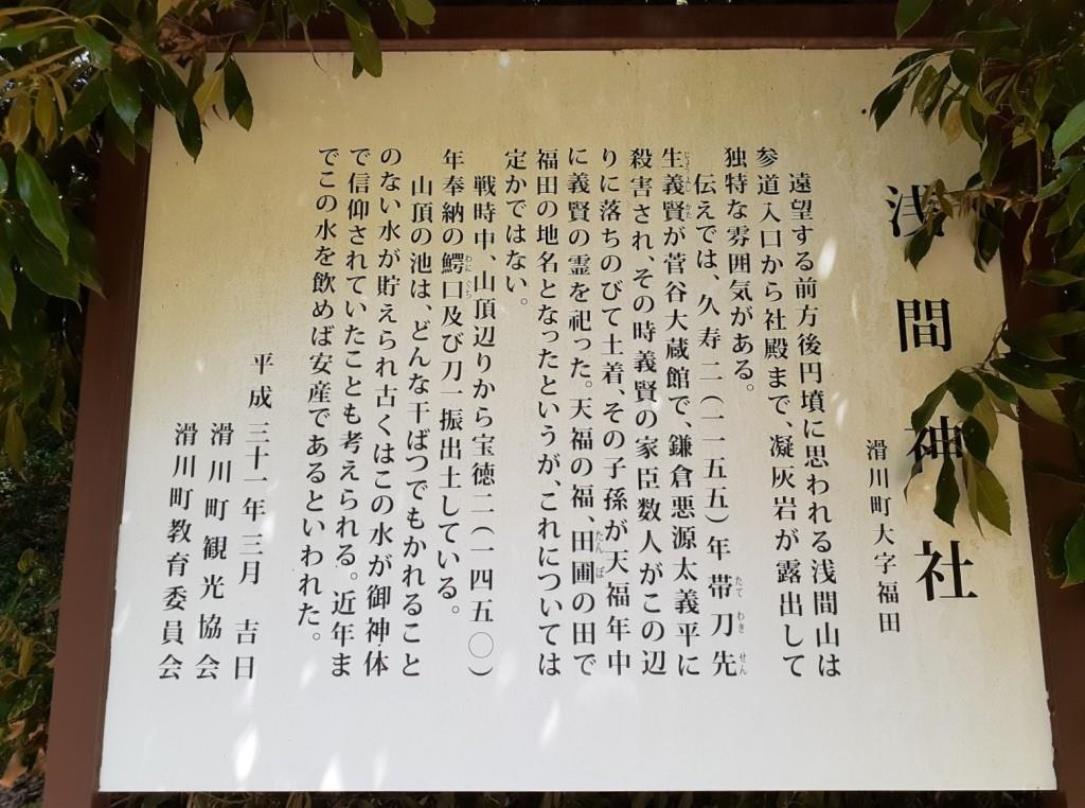 浅間神社
滑川町大字福田
遠望する前方後円墳に思われる浅間山は
参道入口から社殿まで、凝灰岩が露出して
独特な雰囲気がある。
伝えでは、久寿二(一一五五)年帯刀先
生義賢が菅谷大蔵館で、鎌倉悪源太義平に
殺害され、その時義賢の家臣数人がこの辺
りに落ちのびて土着、その子孫が天福年中
に義賢の霊を祀った。天福の福、田圃の田で
福田の地名となったというが、これについては
定かではない。
戦時中、山頂辺りから宝徳二(一四五〇)
年奉納の鰐口及び刀一振出土している。
山頂の池は、どんな干ばつでもかれること
のない水が貯えられ古くはこの水が御神体
で信仰されていたことも考えられる。近年ま
でこの水を飲めば安産であるといわれた。
平成三十一年三月 吉日
滑川町観光協会
滑川町教育委員会